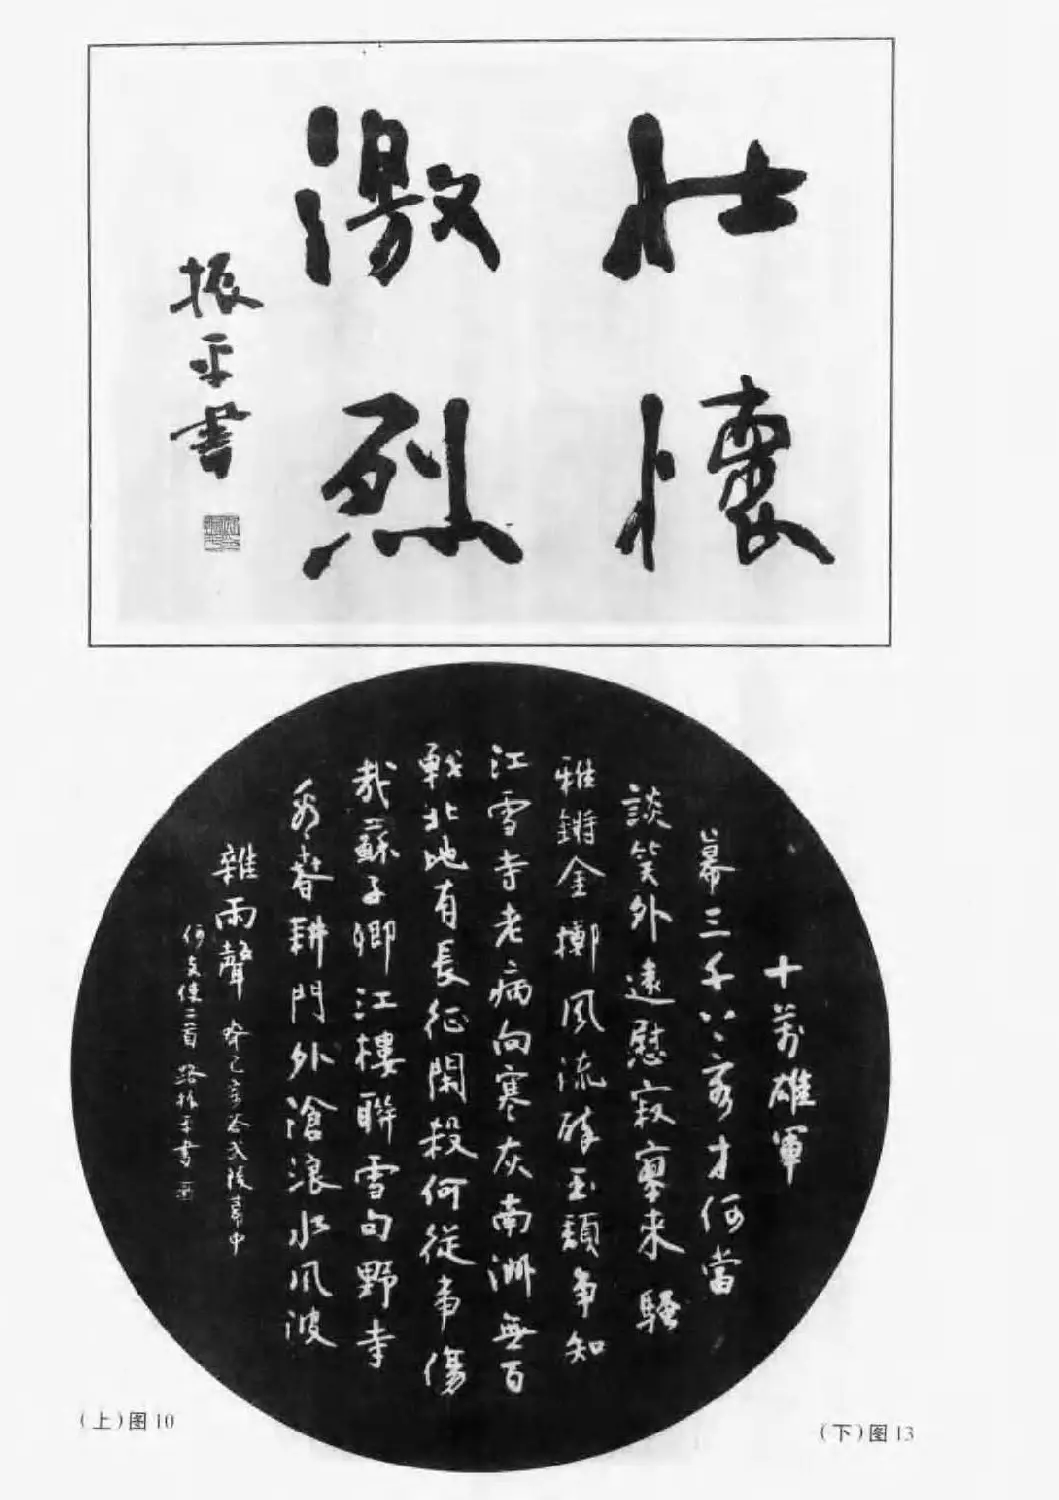 壮懷
激烈
振平書
十萬雄軍
幕三千上客才何當
談笑外遠慰寂寥來騷
雅鏘金擲風流醉玉頹争知
江雪寺老病向寒灰南洲無百
戰北地有長征閑殺何從事傷
哉蘇子卿江樓聯雪句野寺
看春耕門外滄浪水風波
雜雨聲 齊己寄答武陵幕中
何支使二首 路振平書
(上)图10
(下)图13